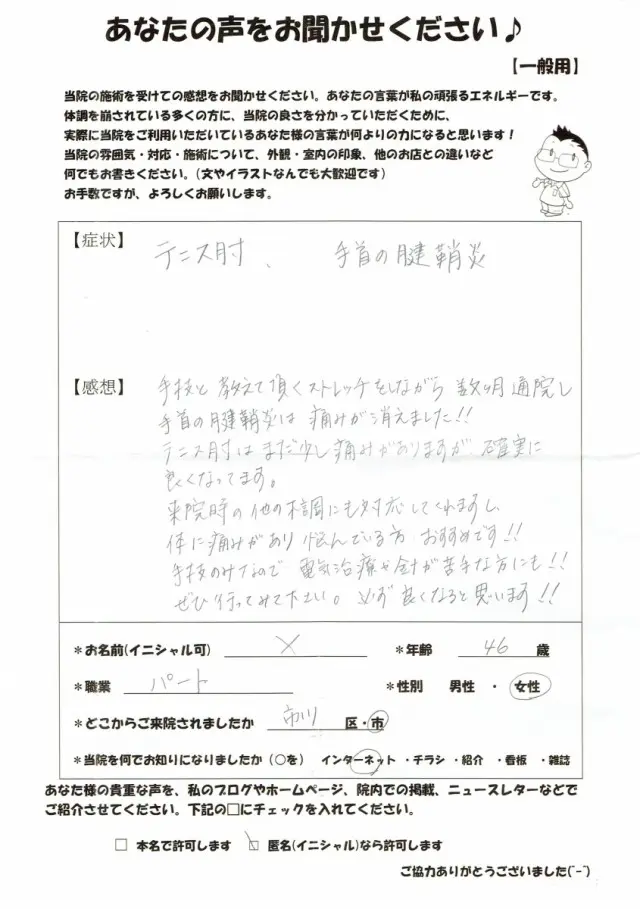 あなたの声をお聞かせください♪
【一般用】
当院の施術を受けての感想をお聞かせください。あなたの言葉が私の頑張るエネルギーです。
体調を崩されている多くの方に、当院の良さを分かっていただくために、
実際に当院をご利用いただいているあなた様の言葉が何よりの力になると思います！
当院の雰囲気・対応・施術について、外観・室内の印象、他のお店との違いなど
何でもお書きください。（文やイラストなんでも大歓迎です）
お手数ですが、よろしくお願いします。
【症状】 テニス肘、 手首の腱鞘炎
【感想】 手技と教えて頂くストレッチをしながら 数ヶ月通院し
手首の腱鞘炎は痛みが消えました!!
テニス肘はまだ少し痛みがありますが 確実に
良くなってます。
来院時の他の不調にも対応してくれますし、
体に痛みがあり悩んでいる方 おすすめです!!
手技のみなので 電気治療や針が苦手な方にも!!
ぜひ行ってみて下さい。必ず良くなると思います!!
＊お名前(イニシャル可) X ＊年齢 46 歳
＊職業 パート ＊性別 男性 ・ 女性
＊どこからご来院されましたか 市川 区・市
＊当院を何でお知りになりましたか（○を） インターネット ・チラシ ・紹介 ・看板 ・雑誌
あなた様の貴重な声を、私のブログやホームページ、院内での掲載、ニュースレターなどで
ご紹介させてください。下記の□にチェックを入れてください。
□ 本名で許可します ☑ 匿名(イニシャル)なら許可します
ご協力ありがとうございました(^-^)